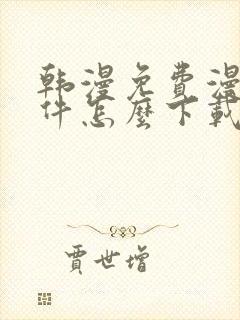 韩漫免费漫
件怎麼下載
賈世增